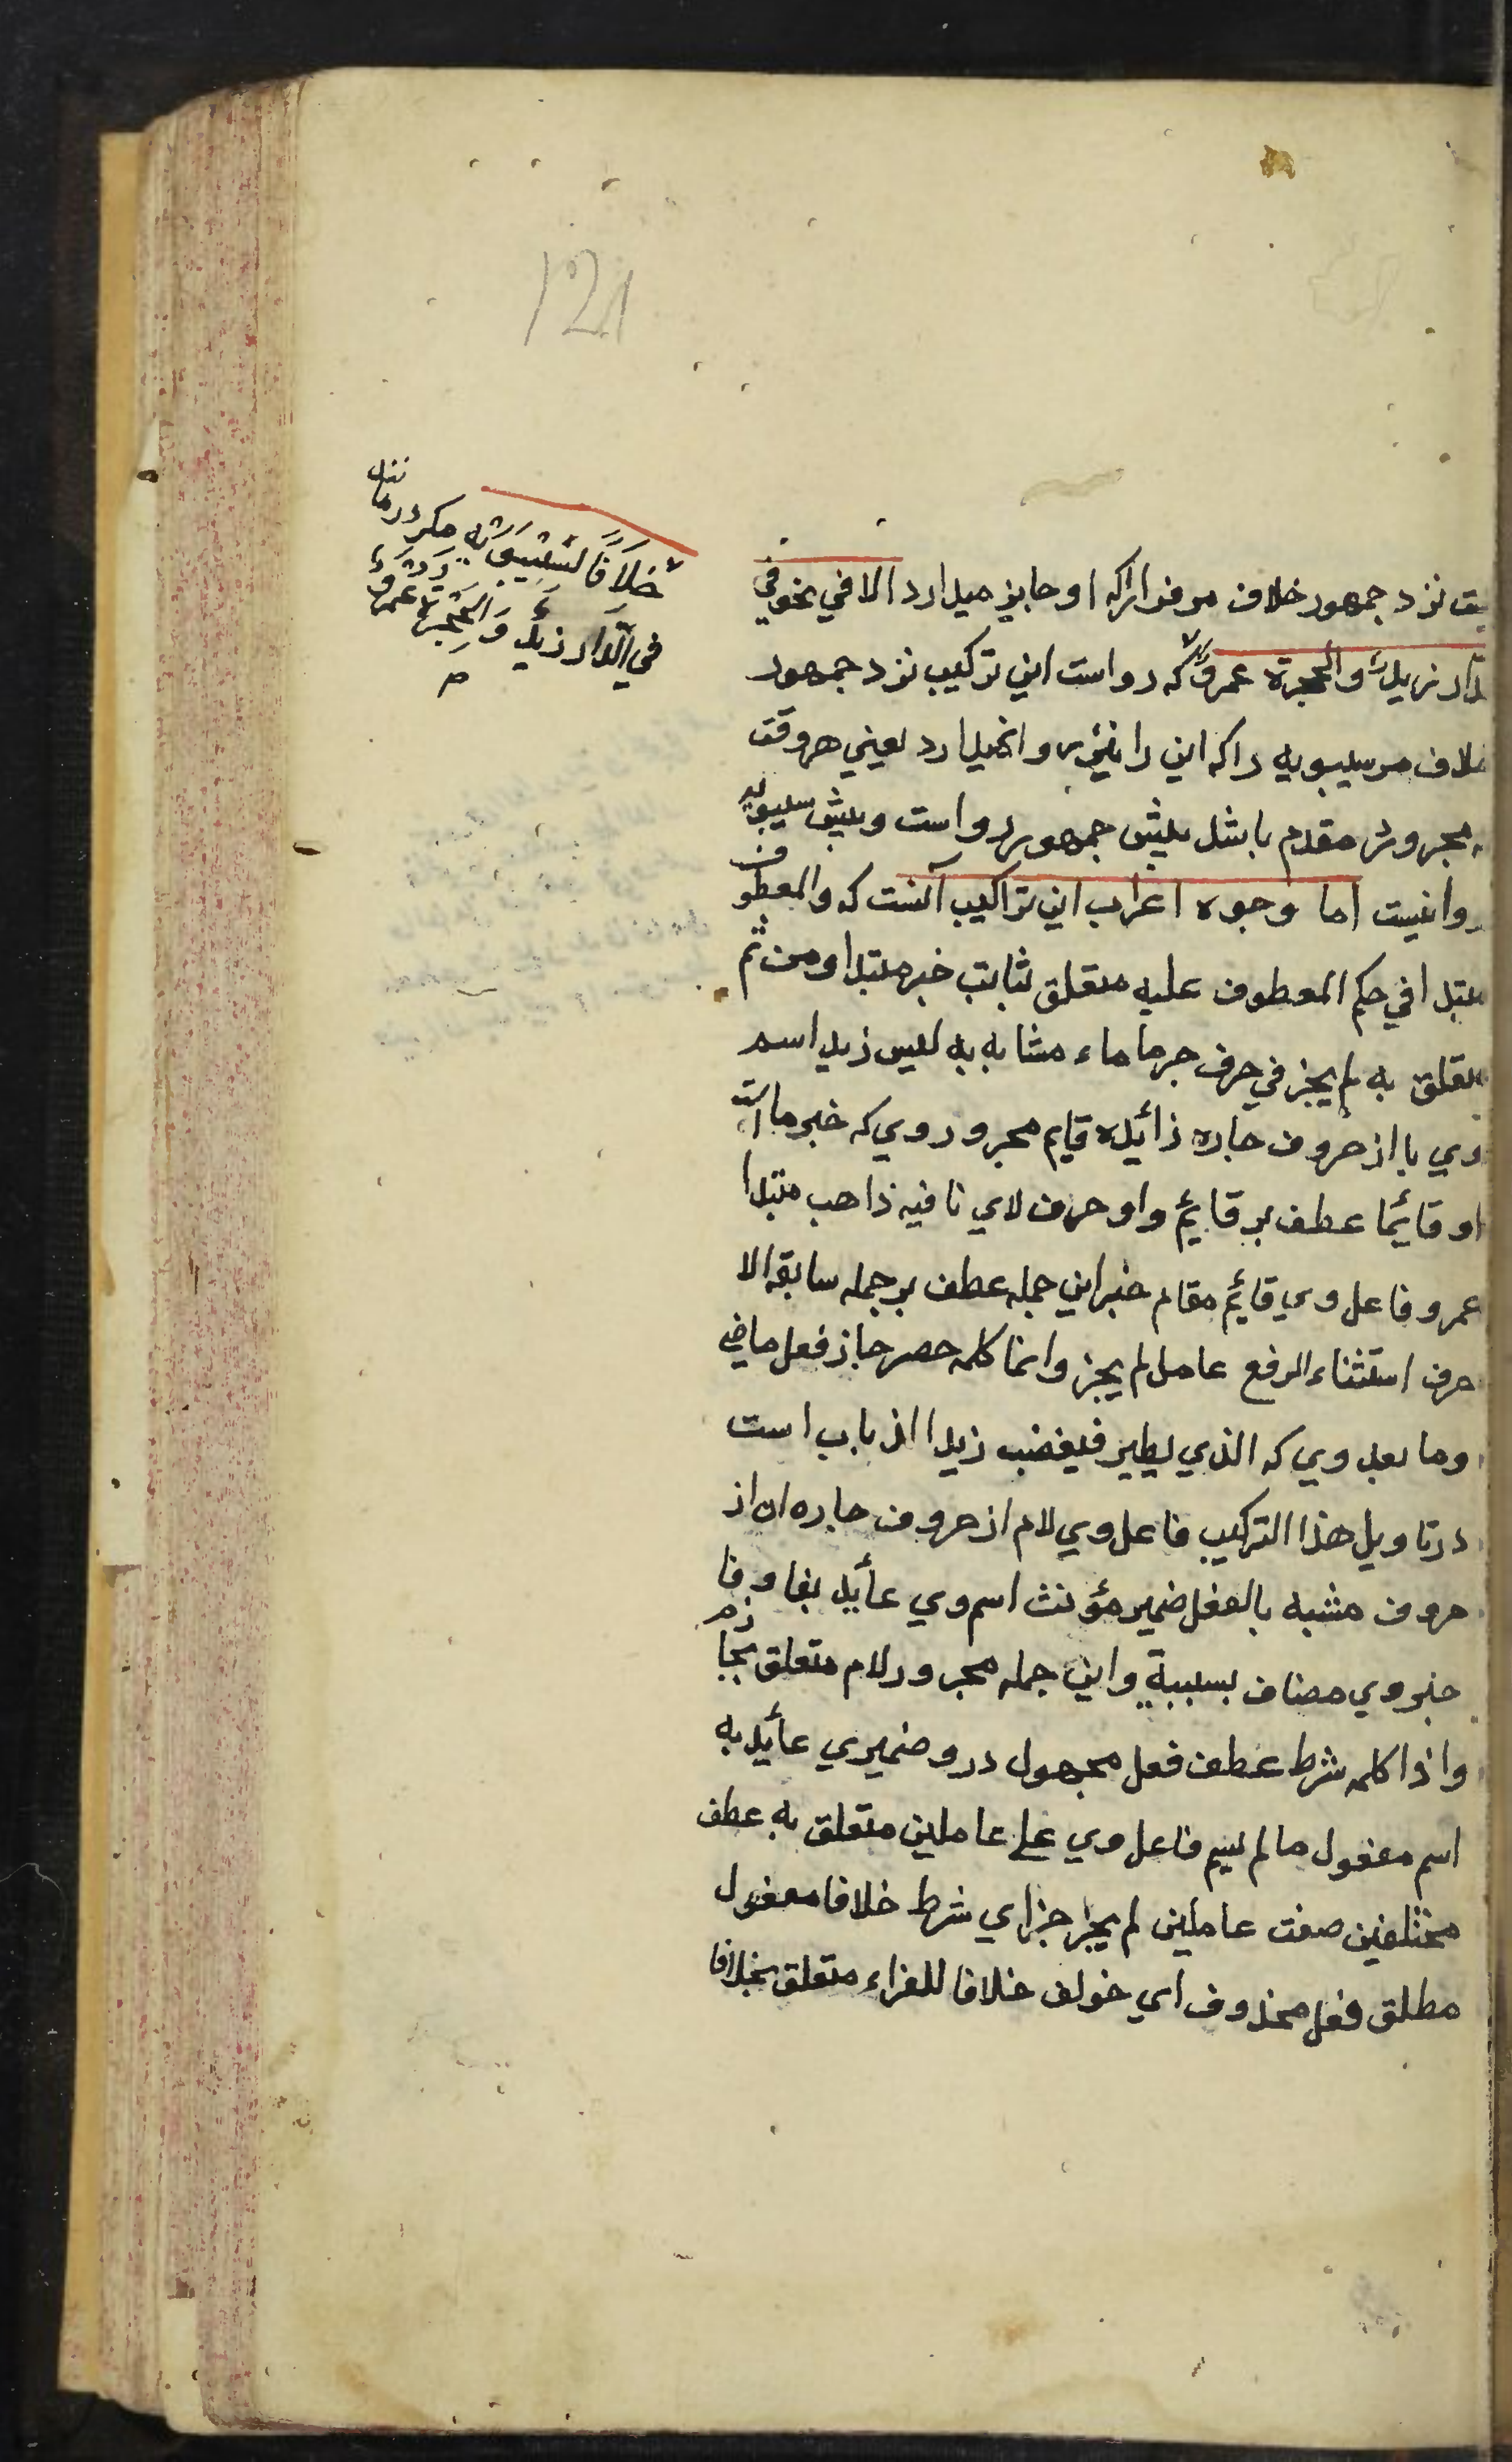 121
نزد جمهور خلاف مر فرا راکه او جایز میدارد الا في نحو في
الدار زيدٌ والحجرة عمروٌ که رواست این ترکیب نزد جمهور
خلاف مر سیبویه را که این را نیز روا نمیدارد یعني هر وقت
که مجرور مقدم باشد پیش جمهور رواست وپیش سیبویه
روا نیست اما وجوه اعراب این تراکیب آنست که والمعطوف
مبتدا في حکم المعطوف علیه متعلق ثابت خبر مبتدا ومن ثم
متعلق به لم یجز في حرف جر ما ماء مشابه به لیس زید اسم
وي با از حروف جاره زائیده قایم مجرور وي که خبر ما است
او قائیما عطف بر قائیم واو حرف لاي نافیه ذاهب مبتدا
عمرو فاعل وي قائیم مقام خبر این جمله عطف بر جمله سابقه الا
حرف استثناء الرفع عامل لم یجز وانما کلمه حصر جاز فعل ماضي
وما بعد وي که الذي یطیر فیغضب زیدا الذباب است
در تاویل هذا الترکیب فاعل وي لام از حروف جاره ان از
حروف مشبه بالفعل ضمیر مؤنث اسم وي عائید بفا و فا
خبر وي مضاف بسببیة واین جمله مجرور لام متعلق بجاز
واذا کلمه شرط عطف فعل مجهول درو ضمیري عائید به
اسم مفعول ما لم یسم فاعل وي علی عاملین متعلق به عطف
مختلفین صفت عاملین لم یجز جزاي شرط خلافا مفعول
مطلق فعل محذوف اي خولف خلافا للفراء متعلق بخلافا
خلافًا لسیبویه مکر در مانند
في الدار زیدٌ والحجرة عمروٌ